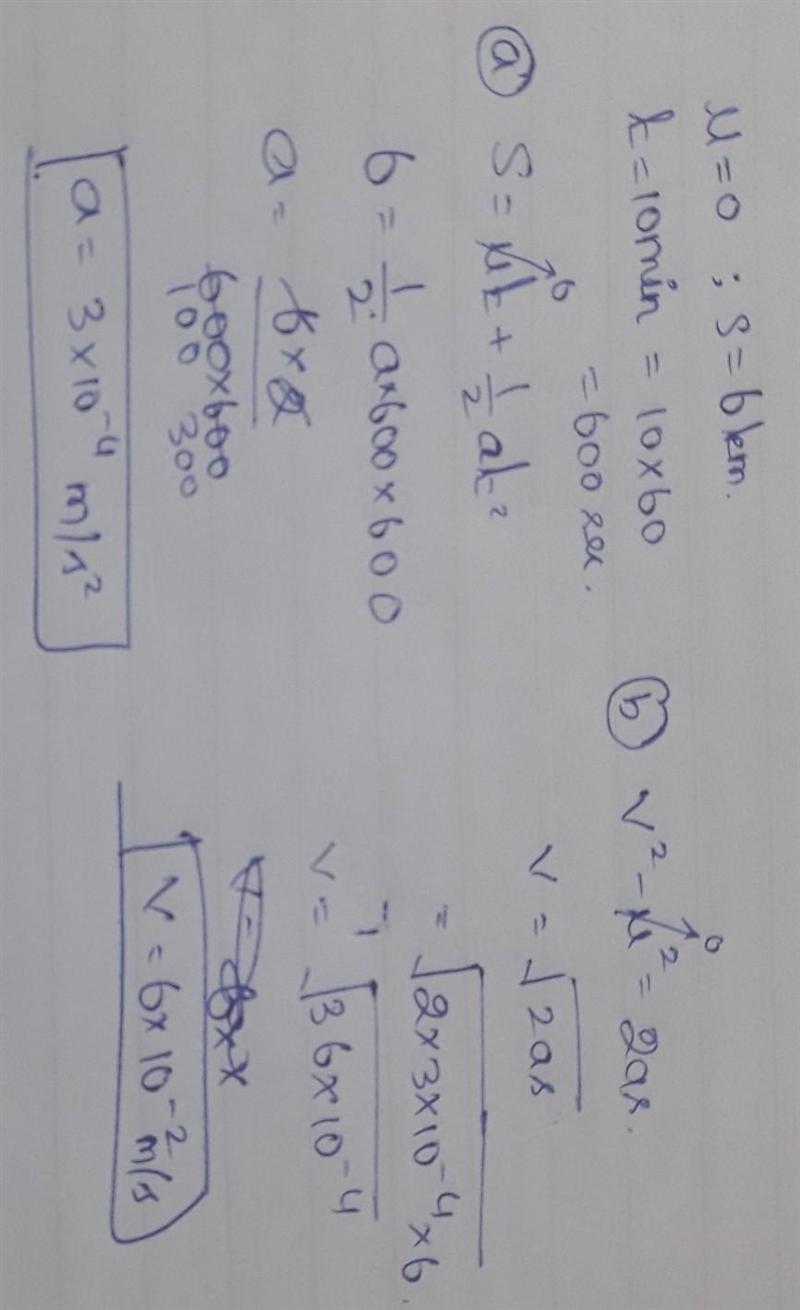 u = 0 ; S = 6 km.
t = 10 min = 10 x 60
= 600 sec.
(a) S = ut→0 + 1/2 at²
6 = 1/2 a x 600 x 600
a = 6 x 2 / 600 x 600
100 300
a = 3 x 10⁻⁴ m/s²
(b) v² - u²→0 = 2as.
v = √2as
= √2 x 3 x 10⁻⁴ x 6.
v = √36 x 10⁻⁴
v = 6 x 10⁻² m/s